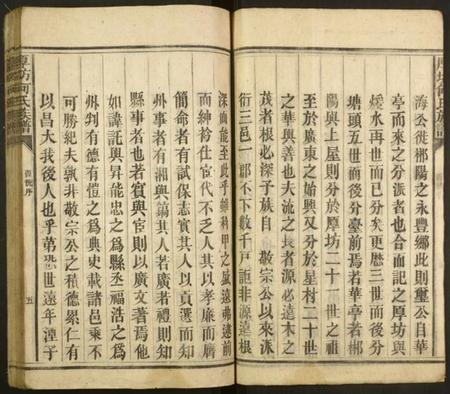 海公徙郴陽之永豐鄉此則璽公自華
亭而來之分派者也合而記之厚坊與
緩水再世而已分矣更歷三世而後分
塘頭五世而後分臺前焉若華亭者郴
陽與上屋則分於厚坊二十一世之祖
至於廣東之始興又分於星村二十世
之華與善也夫流之長者源必遠木之
茂者根必深子族自敬宗公以來派
衍三邑一郡不下數千戶詎非源遠根
深而能至此乎雖科甲之風遠弗逮前
而紳衿仕宦代不乏人其以孝廉而膺
簡命者有試保志實其人以貢選而知
州事者有湘興蕍其人若廣者禮則知
縣事者也若賓與宦則以廣文著焉他
如諱託與昇能忠之爲縣丞福浩之爲
州判有德有愷之爲典史載諸邑乘不
可勝紀夫孰非敬宗公之積德累仁有
以昌大我後人也乎第恐世遠年湮子
厚坊何氏族譜
舊悦序
五
厚坊何氏族譜